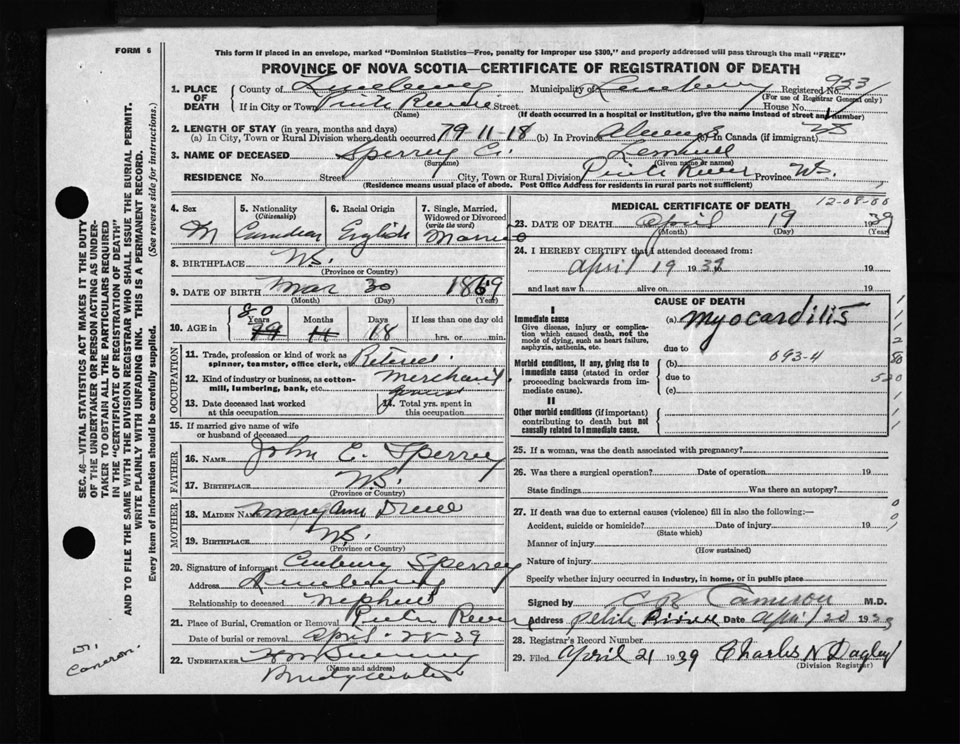 FORM 6
This form if placed in an envelope, marked "Dominion Statistics—Free, penalty for improper use $300," and properly addressed will pass through the mail "FREE"
PROVINCE OF NOVA SCOTIA—CERTIFICATE OF REGISTRATION OF DEATH
SEC. 46—VITAL STATISTICS ACT MAKES IT THE DUTY
OF THE UNDERTAKER OR PERSON ACTING AS UNDER-
TAKER TO OBTAIN ALL THE PARTICULARS REQUIRED
IN THE "CERTIFICATE OF REGISTRATION OF DEATH"
AND TO FILE THE SAME WITH THE DIVISION REGISTRAR WHO SHALL ISSUE THE BURIAL PERMIT.
WRITE PLAINLY WITH UNFADING INK. THIS IS A PERMANENT RECORD.
Every item of information should be carefully supplied. (See reverse side for instructions.)
Dr. Cameron.
1. PLACE OF DEATH County of Lunenburg Municipality of Lunenburg Registered No. 953
(For use of Registrar General only)
If in City or Town Street House No.
(Name) (If death occurred in a hospital or institution, give the name instead of street and number)
2. LENGTH OF STAY (in years, months and days)
(a) In City, Town or Rural Division where death occurred 79-11-18 (b) In Province Always (b) In Canada (if immigrant)
3. NAME OF DECEASED Sperrey
(Surname) (Given name or names)
RESIDENCE No. Street City, Town or Rural Division River Province N.S.
(Residence means usual place of abode. Post Office Address for residents in rural parts not sufficient)
4. Sex M
5. Nationality (Citizenship) Canadian
6. Racial Origin English
7. Single, Married, Widowed or Divorced (write the word) Married
8. BIRTHPLACE N.S.
(Province or Country)
9. DATE OF BIRTH Mar 30 1869
(Month) (Day) (Year)
10. AGE in 80 Years 79 Months 11 Days 18 If less than one day old
hrs. or min.
OCCUPATION
11. Trade, profession or kind of work as spinner, teamster, office clerk, etc. Retired.
12. Kind of industry or business, as cotton-mill, lumbering, bank, etc. Merchant
13. Date deceased last worked at this occupation 14. Total yrs. spent in this occupation
15. If married give name of wife or husband of deceased
FATHER
16. Name John E. Sperrey
17. Birthplace N.S.
(Province or Country)
MOTHER
18. Maiden Name Mary Ann
19. Birthplace N.S.
(Province or Country)
20. Signature of informant Sperrey
Address Lunenburg
Relationship to deceased nephew
21. Place of Burial, Cremation or Removal River
Date of burial or removal April
22. UNDERTAKER
(Name and address)
Bridgewater
MEDICAL CERTIFICATE OF DEATH 12-08-00
23. DATE OF DEATH April 19 1939
(Month) (Day) (Year)
24. I HEREBY CERTIFY that I attended deceased from:
April 19 1939 19
and last saw h alive on 19
CAUSE OF DEATH
I
Immediate cause
Give disease, injury or complication which caused death, not the mode of dying, such as heart failure, asphyxia, asthenia, etc.
(a) Myocarditis
due to
Morbid conditions, if any, giving rise to immediate cause (stated in order proceeding backwards from immediate cause).
093-4
(b)
due to
(c)
II
Other morbid conditions (if important) contributing to death but not causally related to immediate cause.
25. If a woman, was the death associated with pregnancy?
26. Was there a surgical operation? Date of operation 19
State findings Was there an autopsy?
27. If death was due to external causes (violence) fill in also the following:—
Accident, suicide or homicide? Date of injury 19
(State which)
Manner of injury
(How sustained)
Nature of injury
Specify whether injury occurred in industry, in home, or in public place
Signed by Cameron M.D.
Address Date April 20 1939
28. Registrar's Record Number
29. Filed April 21 1939 Charles N Dagley
(Division Registrar)